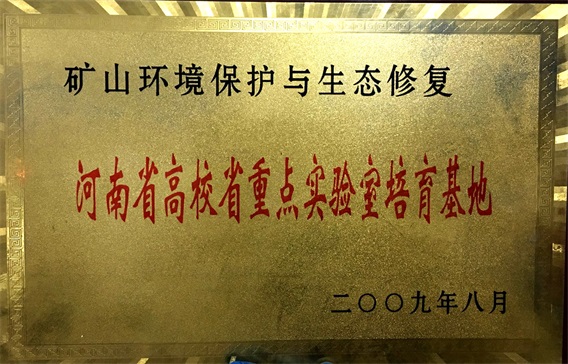 矿山环境保护与生态修复
河南省高校省重点实验室培育基地
二〇〇九年八月